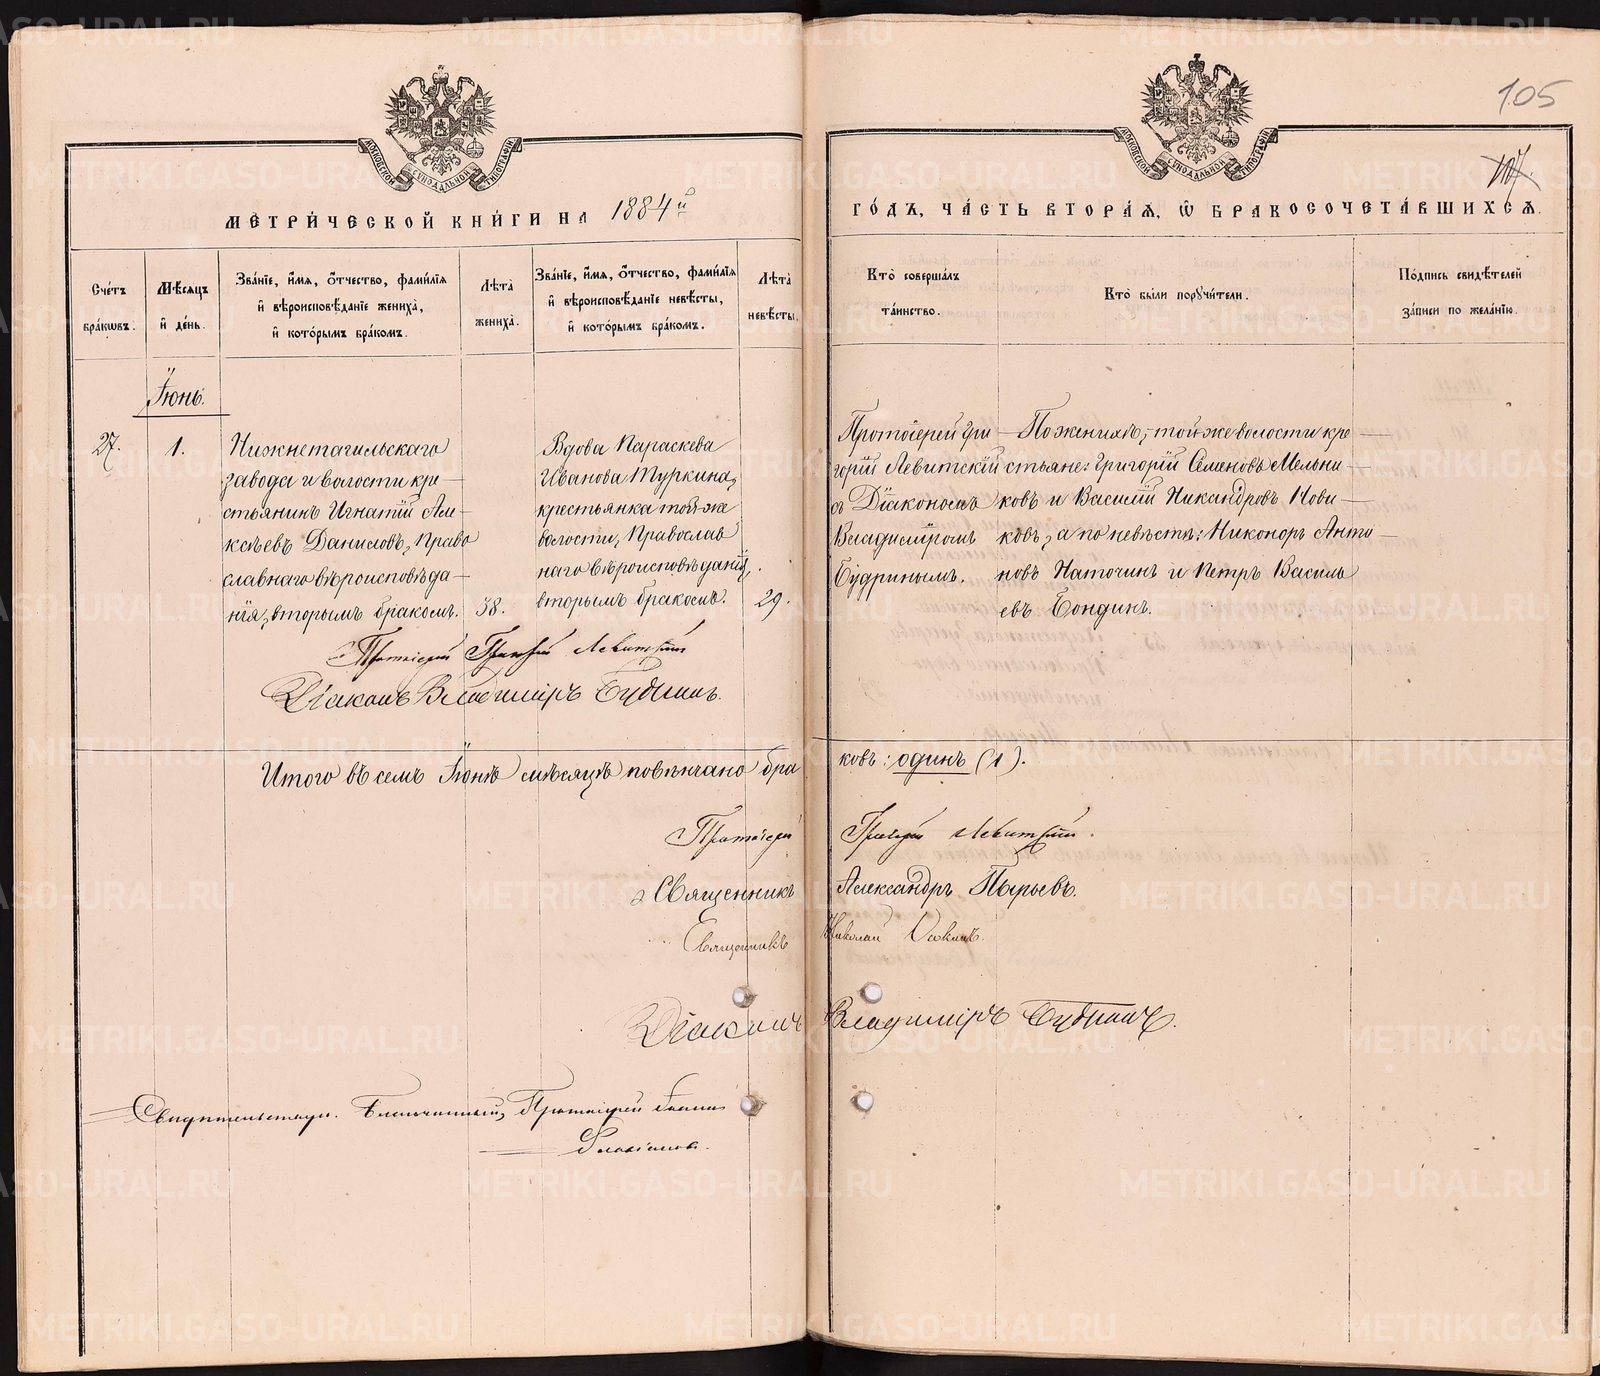 105
107.
МОСКОВСКОЙ СѴНОДАЛЬНОЙ ТИПОГРАФІИ
МОСКОВСКОЙ СѴНОДАЛЬНОЙ ТИПОГРАФІИ
МЕТРИ́ЧЕСКОЙ КНИ́ГИ НА 1884й
ГО́ДЪ, ЧА́СТЬ ВТОРА́Я, Ѡ БРАКОСОЧЕТА́ВШИХСЯ.
Сче́тъ бра́кѡвъ.
Мѣ́сяцъ и де́нь.
Зва́нїе, и́мя, ѻ́тчество, фами́лїя
и вѣроисповѣ́данїе жениха̀,
и кото́рымъ бра́комъ.
Лѣта̀ жениха̀.
Зва́нїе, и́мя, ѻ́тчество, фами́лїя
и вѣроисповѣ́данїе невѣ́сты,
и кото́рымъ бра́комъ.
Лѣта̀ невѣ́сты.
Кто̀ соверша́лъ
та́инство.
Кто̀ бы́ли порꙋчи́тели.
По́дпись свидѣ́телей
за́писи по жела́нїю.
Іюнь.
27.
1.
Нижнетагильскаго
завода и волости кре-
стьянинъ Игнатій Але-
ксѣевъ Даниловъ, Право
славнаго вѣроисповѣда-
нія, вторымъ бракомъ.
38.
Вдова Параскева
Иванова Туркина,
крестьянка той-же
волости, Православ
наго вѣроисповѣданія,
вторымъ бракомъ.
29.
Протоіерей Гри
горій Левитскій
съ Діакономъ
Владиміромъ
Будринымъ.
По женихѣ, той же волости кре-
стьяне: Григорій Семеновъ Мельни-
ковъ и Василій Никандровъ Нови-
ковъ, а по невѣстѣ: Никоноръ Анто-
новъ Наточинъ и Петръ Василь
евъ Бондинъ.
Протоіерей Григорій Левитскій
Діаконъ Владиміръ Будринъ.
Итого въ семъ Іюнѣ мѣсяцѣ повѣнчано бра
ковъ: одинъ (1).
Протоіерей Григорій Левитскій.
Священникъ Александръ Пырьевъ.
Священникъ Николай
Діаконъ Владиміръ Будринъ.
Свидѣтельствую. Благочинный, Протоіерей Іоаннъ
Флавіановъ.
METRIKI.GASO-URAL.RU